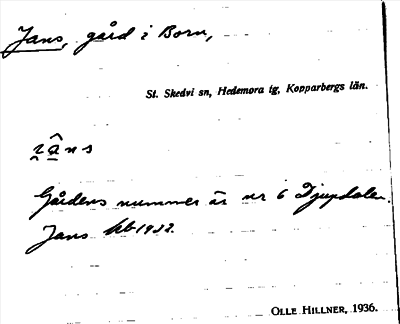 Jans, gård i Born,
St. Skedvi sn, Hedemora tg, Kopparbergs län.
Gårdens nummer är nr 6 Djupdalen.
Jans hb 1922.
OLLE HILLNER, 1936.